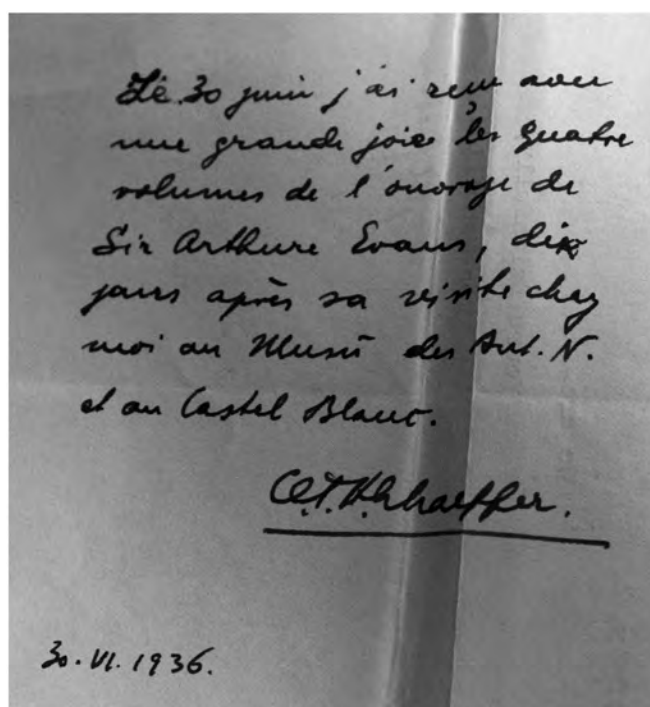 Le 30 juin j'ai reçu avec
une grande joie les quatre
volumes de l'ouvrage de
Sir Arthure Evans, dix
jours après sa visite chez
moi au Musée des Ant. N.
et au Castel Blanc.
Cl.F.A.Schaeffer.
30.VI.1936.